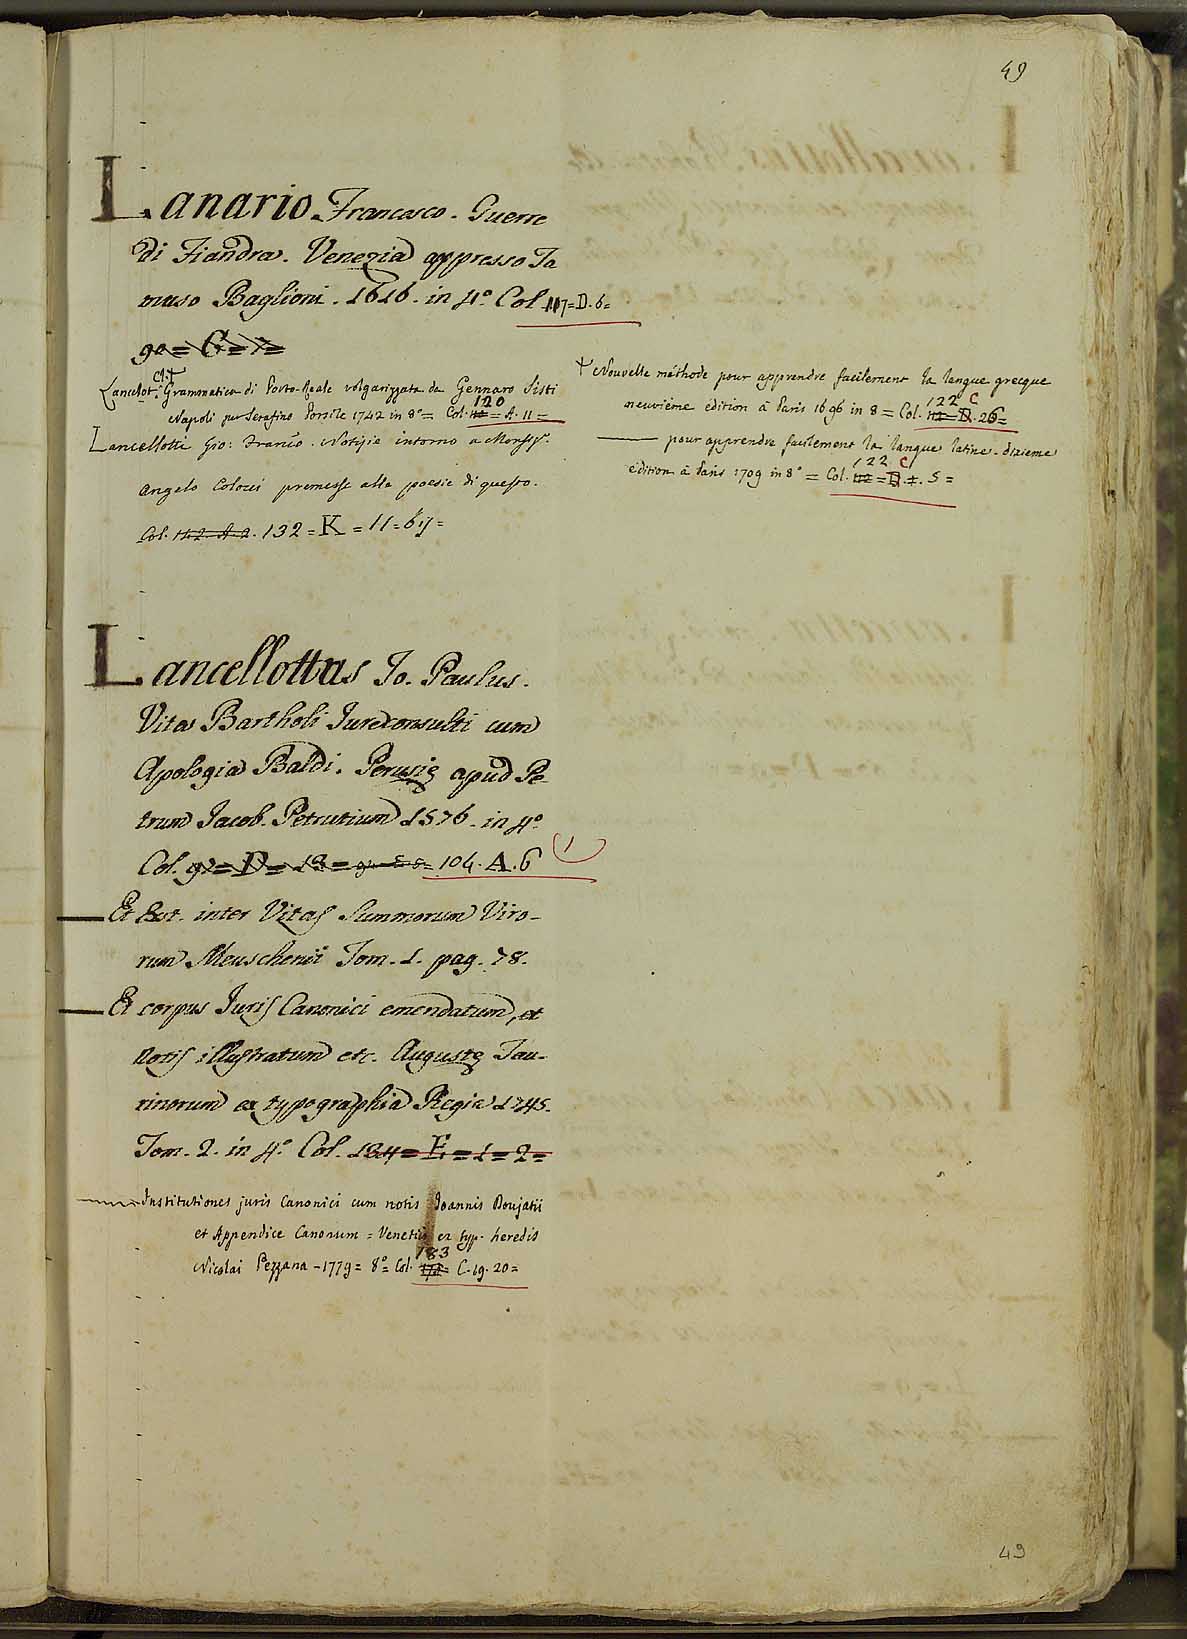 49
Lanario Francesco. Guerre
di Fiandra. Venezia appresso Ta
maso Baglioni. 1616. in 4.º Col. 117=D.6=
90=G=7=
Lancelot Cl. Grammatica di Porto-Reale volgarizzata da Gennaro Sisti
Napoli per Serafino Porsile 1742 in 8º= Col. 120 = A. 11=
Lancellotti Gio: Franc.º Notizie intorno a Monsigr.
Angelo Colocci premesse alle poesie di questo.
Col. 142. A. 2. 132=K=11=67=
Nouvelle méthode pour apprendre facilement la langue grecque
neuviéme édition à Paris 1696 in 8= Col. 122 C D. 26=
pour apprendre facilement la langue latine. dixieme
édition à Paris 1709 in 8º= Col. 122 C D. 5=
Lancellottus Jo. Paulus.
Vita Bartholi Jureconsulti cum
Apologia Baldi. Perusię apud Pe
trum Jacob. Petrutium 1576. in 4º.
Col. 92=D=13= 104. A. 6
Et Ext. inter Vitas Summorum Viro-
rum Meuschenii Tom. 1. pag. 78.
Et corpus Juris Canonici emendatum, et
notis illustratum etc. Augustę Tau-
rinorum ex typographia Regia 1745.
Tom. 2. in 4.º Col. 134=E=1=2=
Institutiones juris Canonici cum notis Joannis Doujatii
et Appendice Canonum = Venetiis ex typ. heredis
Nicolai Pezzana - 1779= 8º= Col. 183 C. 19. 20=
49